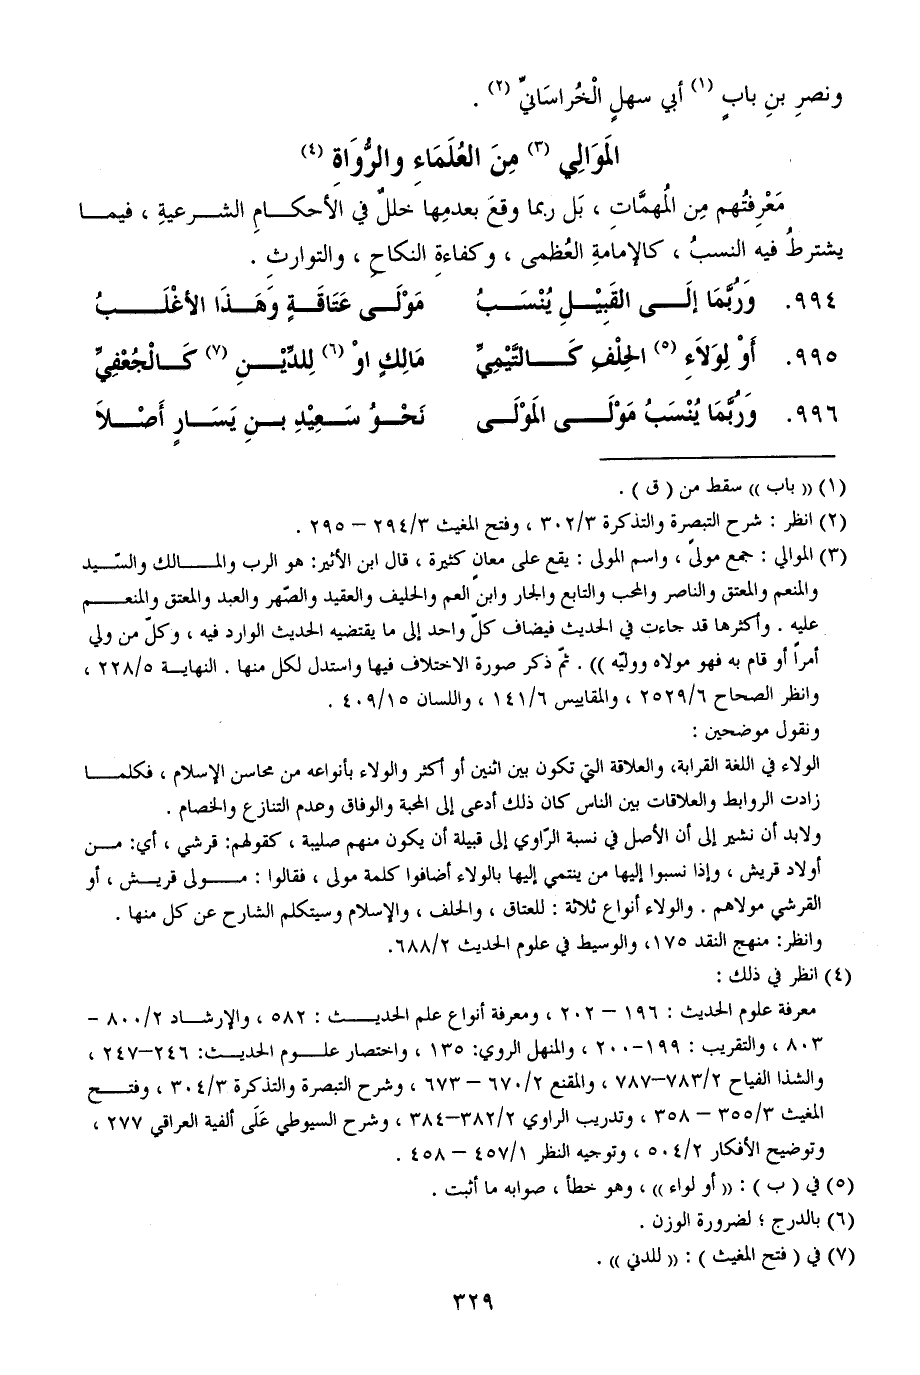 ونصرِ بنِ بابٍ (١) أبي سهلٍ الْخُراسَانيِّ (٢) .
المَوَالِي (٣) مِنَ العُلَمَاءِ والرُّوَاةِ (٤)
مَعْرِفتُهم مِن المُهمَّاتِ ، بَل ربما وقعَ بعدمِها خللٌ في الأحكامِ الشرعيةِ ، فيما
يشترطُ فيه النسبُ ، كالإمامةِ العُظمى ، وكفاءةِ النكاحِ ، والتوارثِ .
٩٩٤. وَرُبَّمَا إلَى القَبِيْلِ يُنْسَبُ مَوْلَى عَتَاقَةٍ وَهَذَا الأغْلَبُ
٩٩٥. أَوْ لِوَلاَءِ (٥) الحِلْفِ كَالتَّيْمِيِّ مَالِكٍ اوْ (٦) لِلدِّيْنِ (٧) كَالْجُعْفِيِّ
٩٩٦. وَرُبَّمَا يُنْسَبُ مَوْلَى المَوْلَى نَحْوُ سَعِيْدِ بنِ يَسَارٍ أَصْلاَ
(١) (( باب )) سقط من ( ق ) .
(٢) انظر : شرح التبصرة والتذكرة ٣٠٢/٣ ، وفتح المغيث ٢٩٤/٣ – ٢٩٥ .
(٣) الموالي : جمع مولىً ، واسم المولى : يقع على معانٍ كثيرة ، قال ابن الأثير: هو الرب والمالك والسّيد
والمنعم والمعتق والناصر والمحب والتابع والجار وابن العم والحليف والعقيد والصّهر والعبد والمعتق والمنعم
عليه . وأكثرها قد جاءت في الحديث فيضاف كلّ واحد إلى ما يقتضيه الحديث الوارد فيه ، وكلّ من ولي
أمراً أو قام به فهو مولاه ووليّه )) . ثمّ ذكر صورة الاختلاف فيها واستدل لكل منها . النهاية ٢٢٨/٥ ،
وانظر الصحاح ٢٥٢٩/٦ ، والمقاييس ١٤١/٦ ، واللسان ٤٠٩/١٥ .
ونقول موضحين :
الولاء في اللغة القرابة، والعلاقة التي تكون بين اثنين أو أكثر والولاء بأنواعه من محاسن الإسلام ، فكلما
زادت الروابط والعلاقات بين الناس كان ذلك أدعى إلى المحبة والوفاق وعدم التنازع والخصام .
ولابد أن نشير إلى أن الأصل في نسبة الرّاوي إلى قبيلة أن يكون منهم صليبة ، كقولهم: قرشي ، أي: من
أولاد قريش ، وإذا نسبوا إليها من ينتمي إليها بالولاء أضافوا كلمة مولى ، فقالوا : مولى قريش ، أو
القرشي مولاهم . والولاء أنواع ثلاثة : للعتاق ، والحلف ، والإسلام وسيتكلم الشارح عن كل منها .
وانظر: منهج النقد ١٧٥، والوسيط في علوم الحديث ٦٨٨/٢.
(٤) انظر في ذلك :
معرفة علوم الحديث : ١٩٦ – ٢٠٢ ، ومعرفة أنواع علم الحديث : ٥٨٢ ، والإرشاد ٨٠٠/٢ –
٨٠٣ ، والتقريب : ١٩٩–٢٠٠ ، والمنهل الروي: ١٣٥ ، واختصار علوم الحديث: ٢٤٦–٢٤٧ ،
والشذا الفياح ٧٨٣/٢–٧٨٧ ، والمقنع ٦٧٠/٢ – ٦٧٣ ، وشرح التبصرة والتذكرة ٣٠٤/٣ ، وفتح
المغيث ٣٥٥/٣ – ٣٥٨ ، وتدريب الراوي ٣٨٢/٢–٣٨٤ ، وشرح السيوطي عَلَى ألفية العراقي ٢٧٧ ،
وتوضيح الأفكار ٥٠٤/٢ ، وتوجيه النظر ٤٥٧/١ – ٤٥٨ .
(٥) في ( ب ) : (( أو لواء )) ، وهو خطأ ، صوابه ما أثبت .
(٦) بالدرج ؛ لضرورة الوزن .
(٧) في ( فتح المغيث ) : (( للدني )) .
٣٢٩